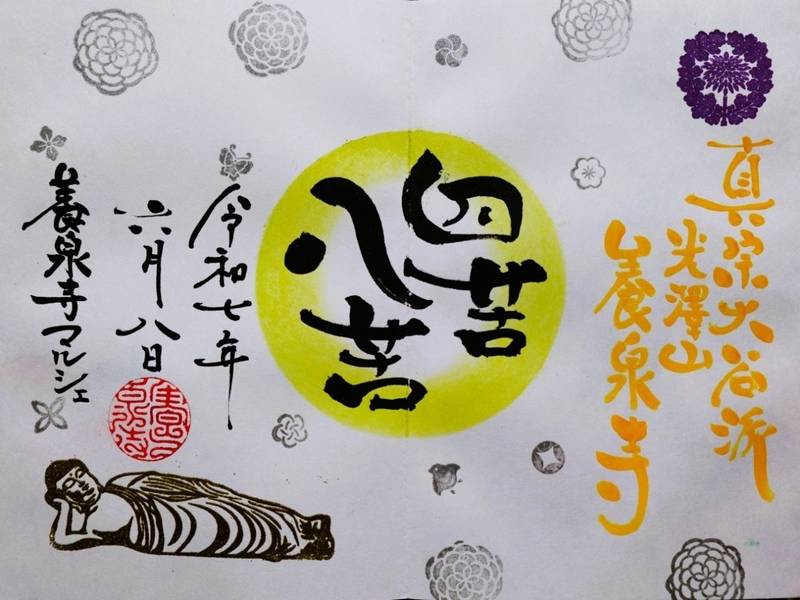 真宗大谷派
光澤山
養泉寺
四苦
八苦
令和七年
六月八日
養泉寺マルシェ